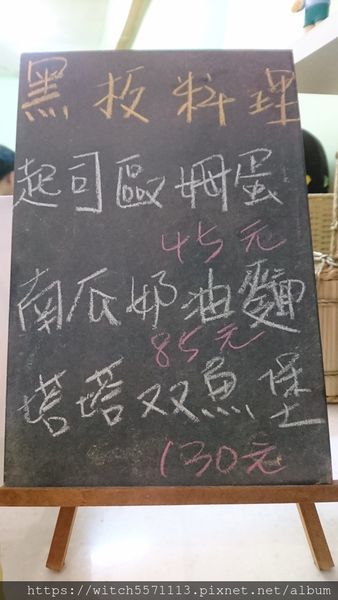 黑板料理
起司歐姆蛋
45元
南瓜奶油麵
85元
塔塔双魚堡
130元
https://witch5571113.pixnet.net/album